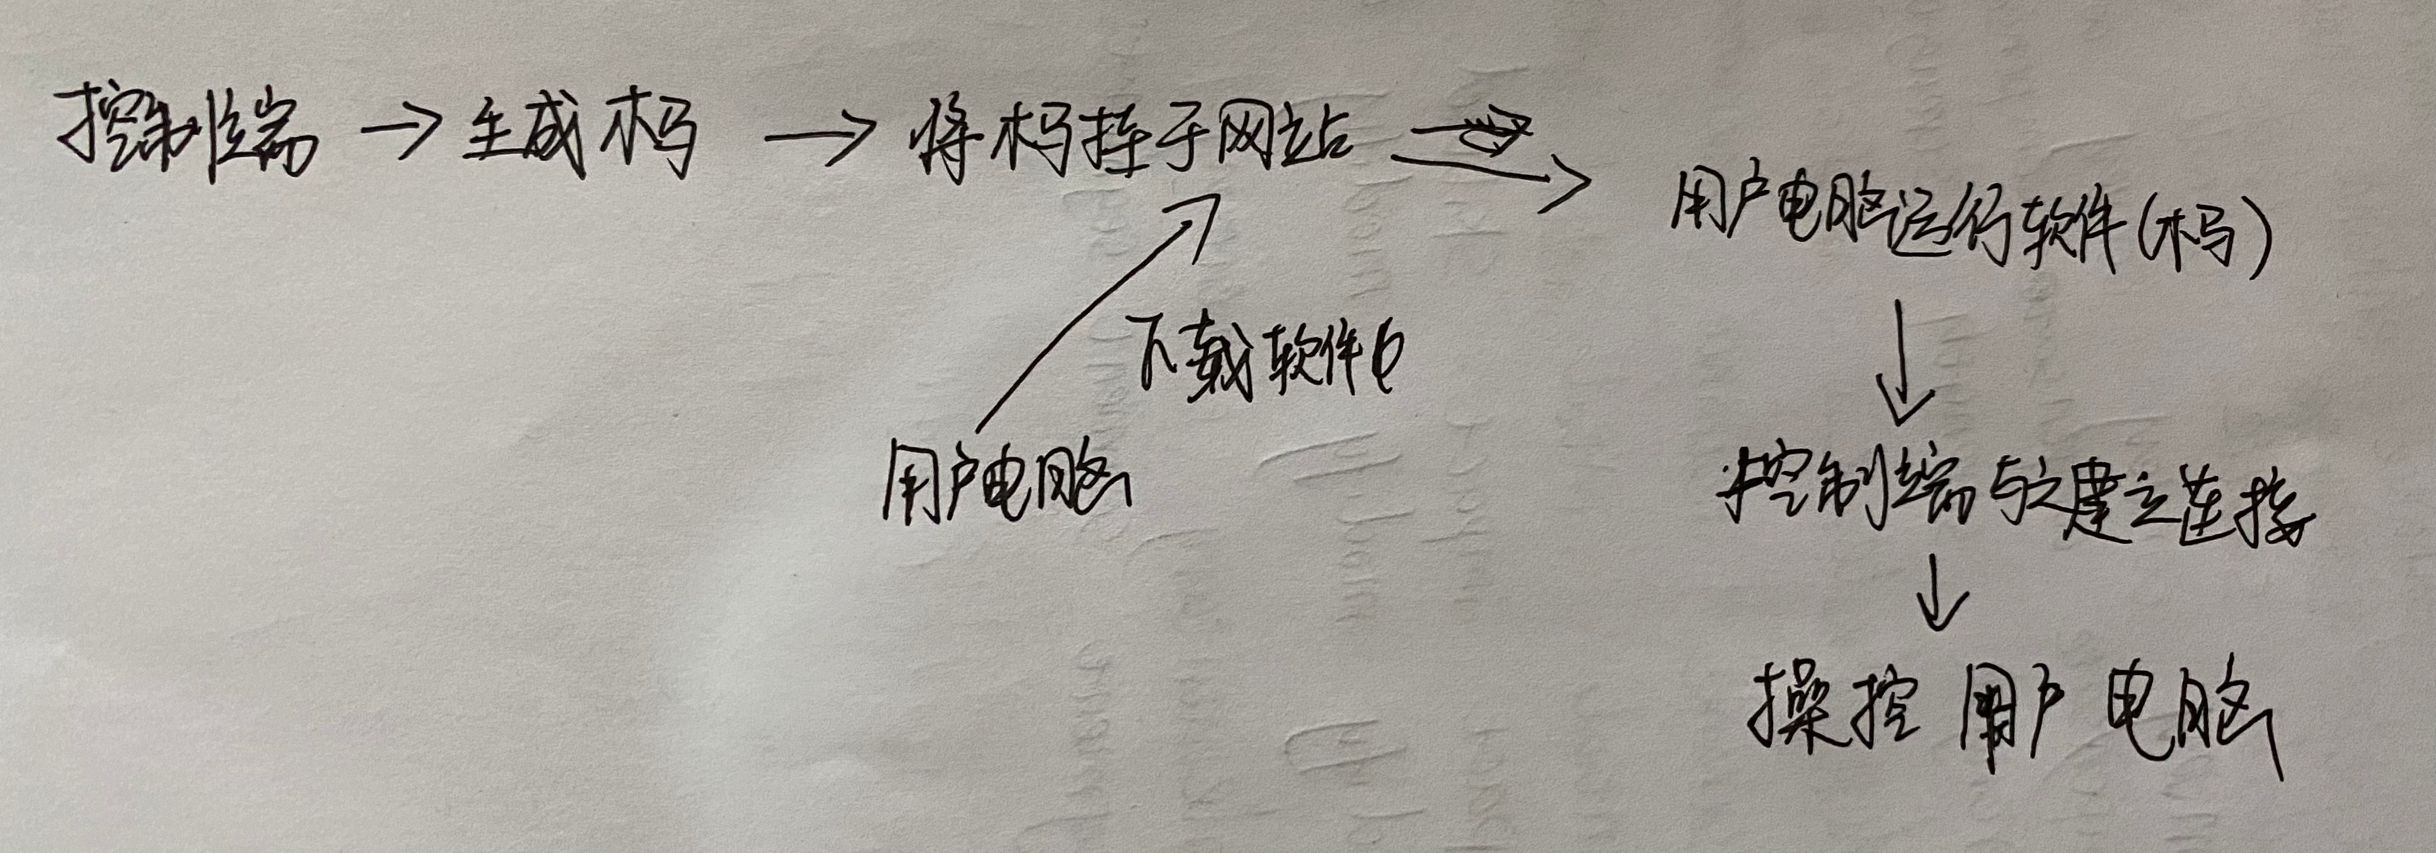 控制端 → 生成木马 → 将木马挂于网站 →
用户电脑运行软件(木马)
下载软件
用户电脑
控制端与之建立连接
操控用户电脑